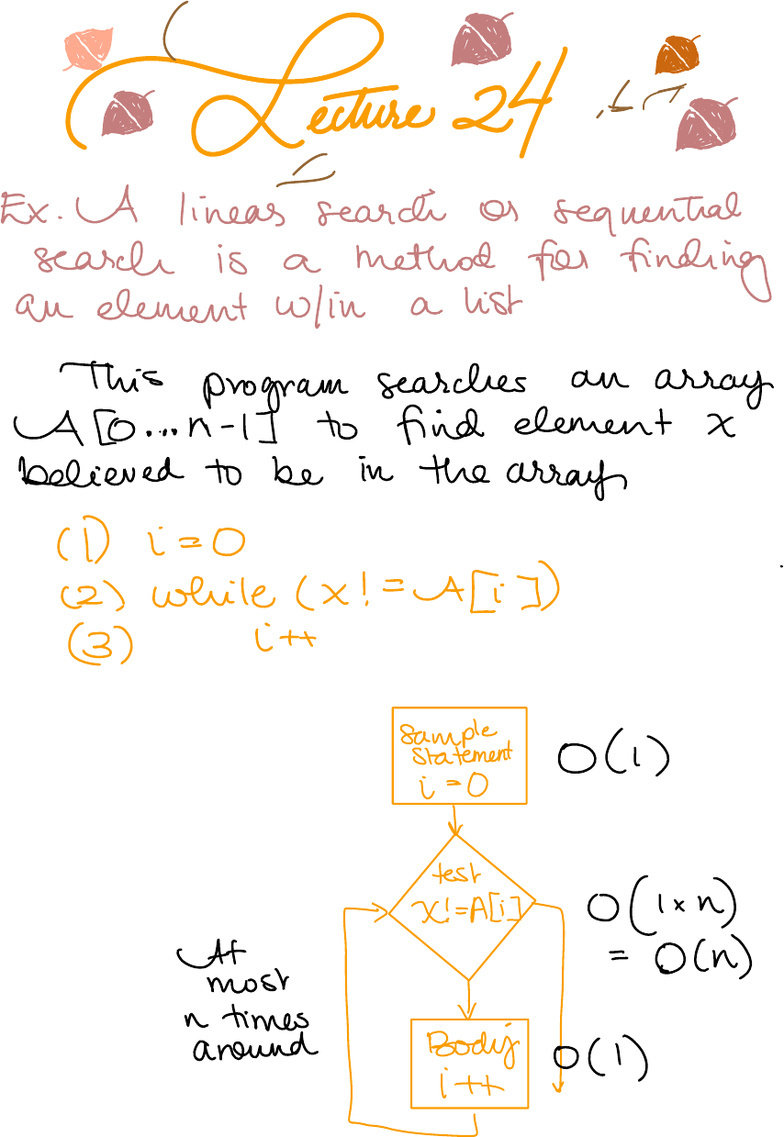 Lecture 24
Ex. A linear search or sequential
search is a method for finding
an element w/in a list
This program searches an array
A[0...n-1] to find element x
believed to be in the array
(1) i=0
(2) while (x!=A[i])
(3) i++
Sample
Statement
i=0
O(1)
test
x!=A[i]
O(1×n)
= O(n)
At
most
n times
around
Body
i++
O(1)